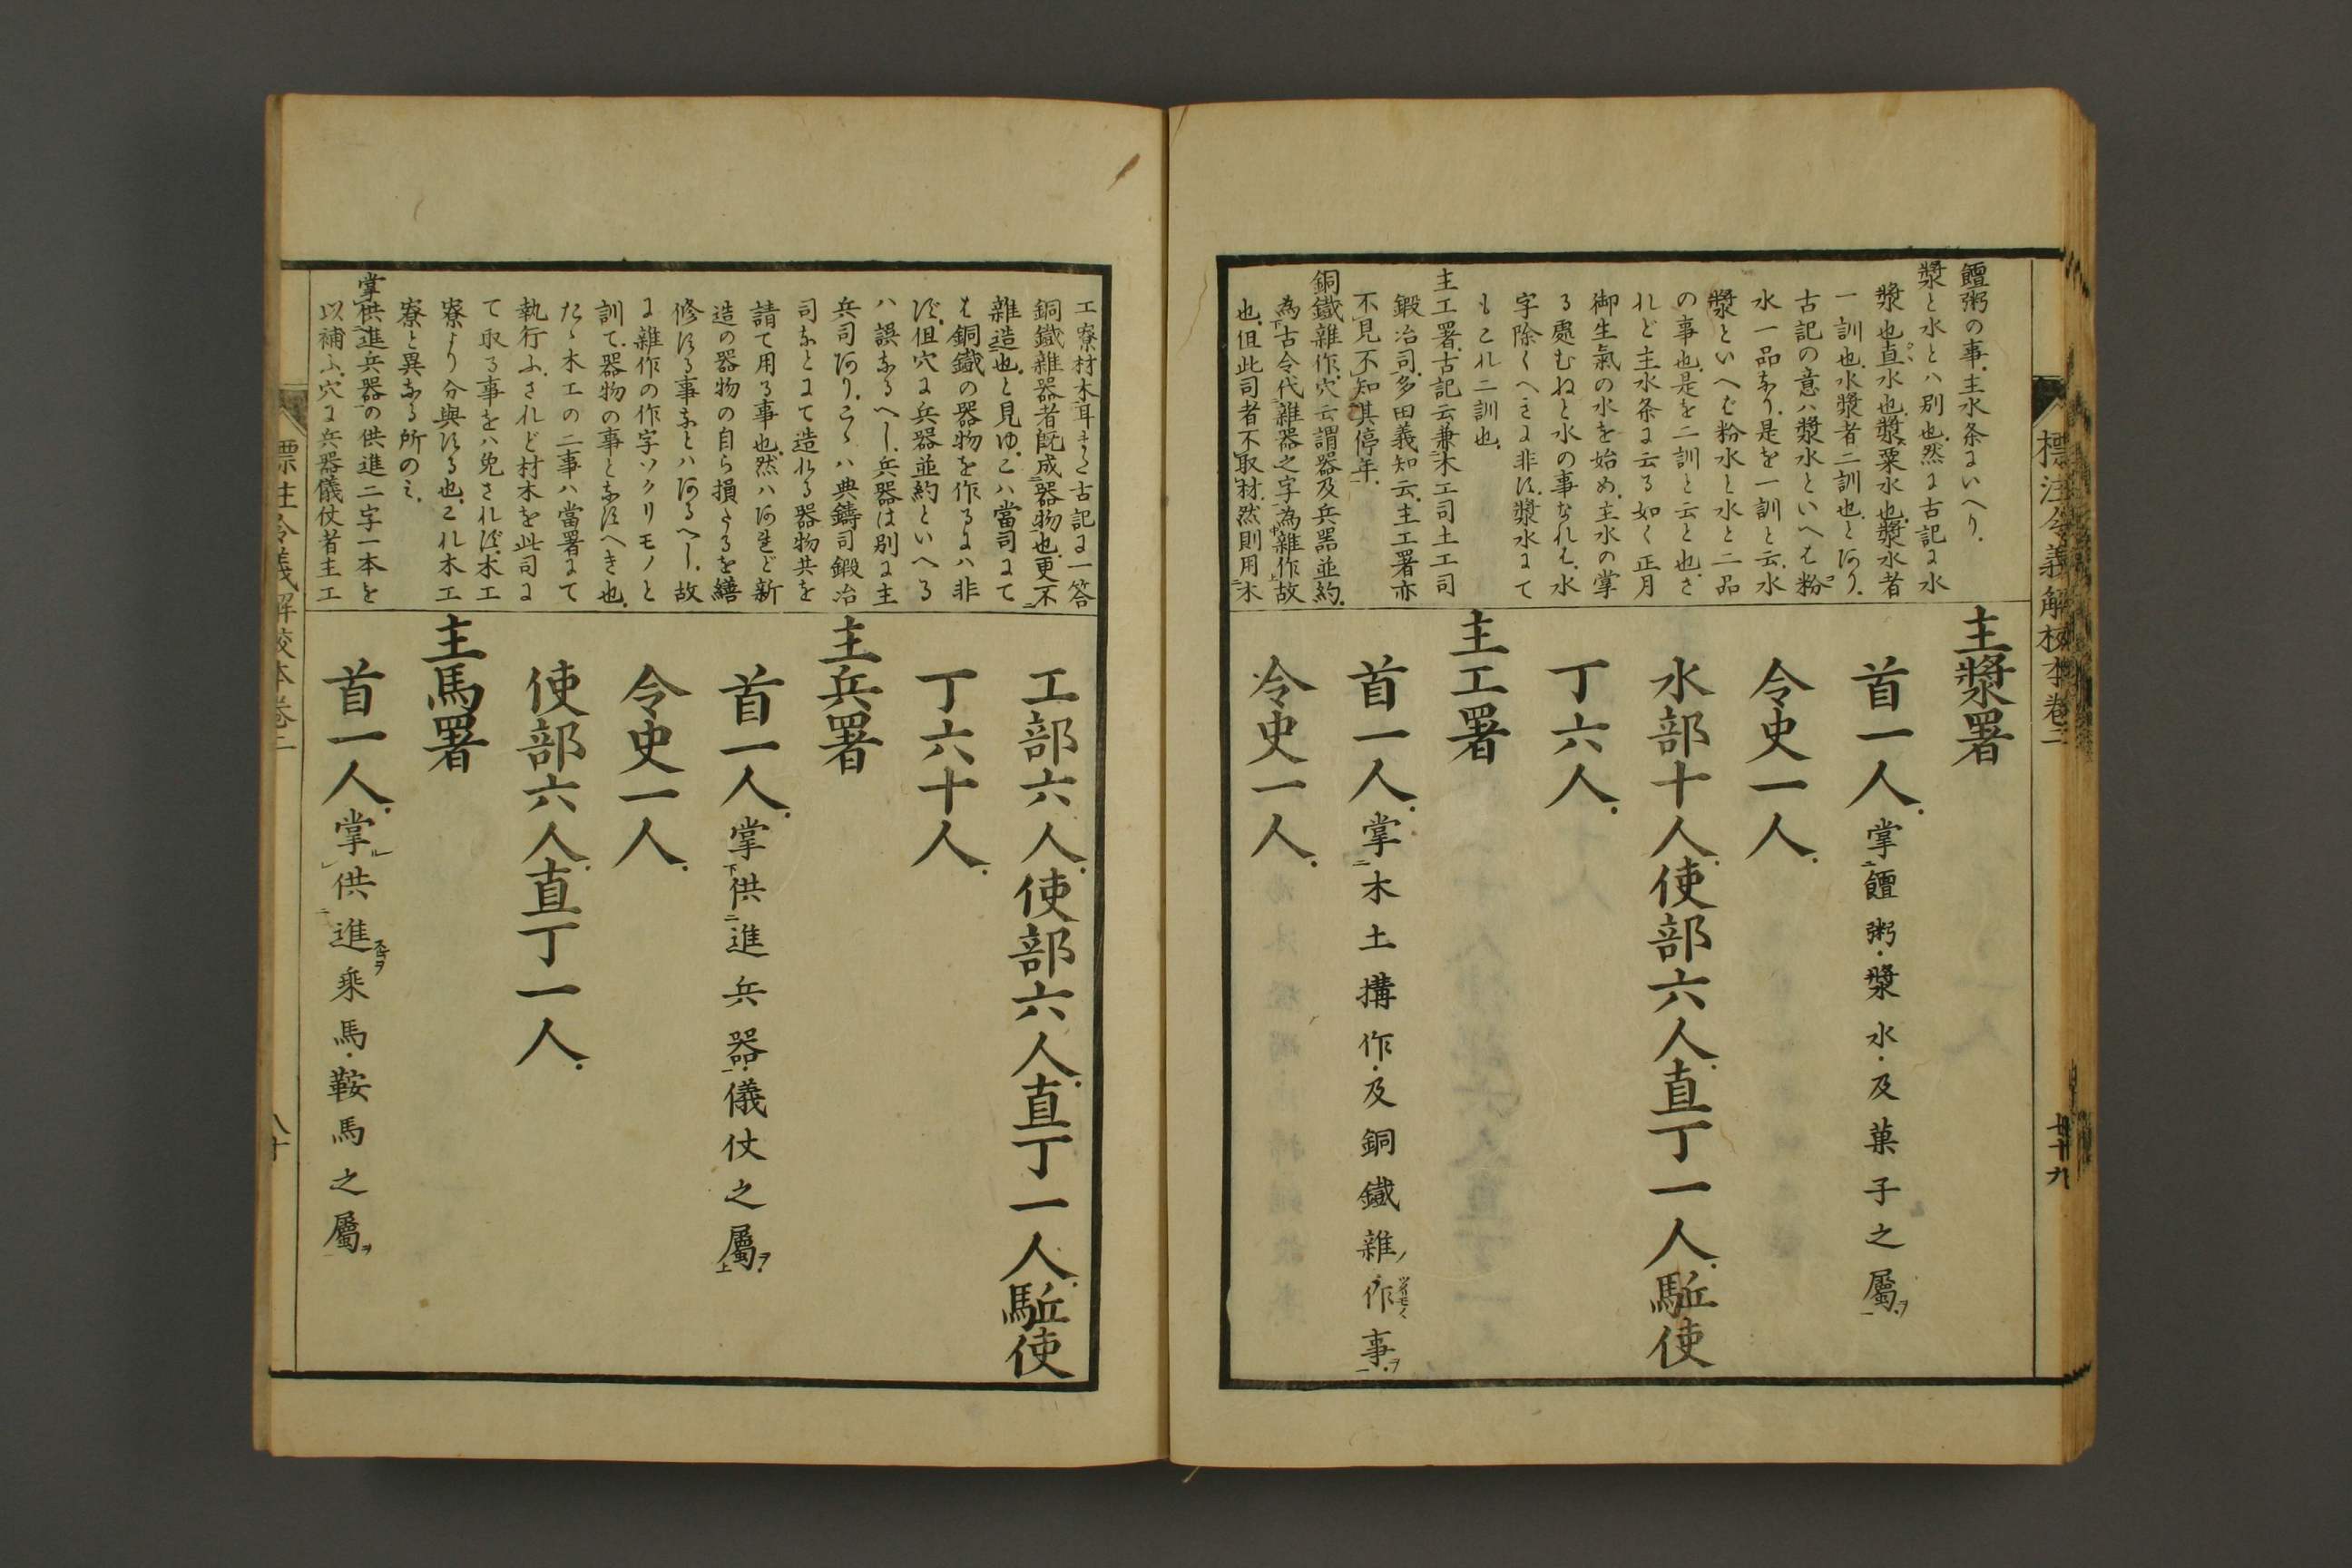 標注令義解校本卷二
七十九
饘粥の事主水条にいへり
漿と水とハ別也然に古記に水
漿也直水也漿粟水也漿水者
一訓也水漿者二訓也とあり
古記の意ハ漿水といへも粉
水一品なり是を一訓と云水
漿といへど粉水と水と二品
の事也是を二訓と云と也さ
れど主水条に云る如く正月
御生氣の水を始め主水の掌
る處むねと水の事なれも水
字除くへきに非ず漿水にて
もこれ二訓也
主工署古記云兼木工司土工司
鍛冶司多田義知云主工署亦
不見不知其停年
銅鐵雜作穴云謂器及兵器並約
為古令代雜器之字為雜作故
也但此司者不取材然則用木
主漿署
首一人掌饘粥漿水及菓子之屬
令史一人
水部十人使部六人直丁一人駈使
丁六人
主工署
首一人掌木土搆作及銅鐵雜作事
令史一人
工寮材木耳また古記に一答
銅鐵雜器者既成器物也更不
雜造也と見ゆこハ當司にて
も銅鐵の器物を作るにハ非
ず但穴に兵器並約といへる
ハ誤なるへし兵器は別に主
兵司あり又ハ典鑄司鍛冶
司などにて造れる器物共を
請て用る事也然ハあれど新
造の器物の自ら損たるを繕
修ずる事などハあるへし故
に雜作の作字ツクリモノと
訓て器物の事となすへき也
たゝ木工の二事ハ當署にて
執行ふされど材木を此司に
て取る事をハ免されず木工
寮より分與する也これ木工
寮と異なる所のミ
掌供進兵器の供進二字一本を
以補ふ穴に兵器儀仗者主工
工部六人使部六人直丁一人駈使
丁六十人
主兵署
首一人掌供進兵器儀仗之屬
令史一人
使部六人直丁一人
主馬署
首一人掌供進乘馬鞍馬之屬
標注令義解校本卷二
八十